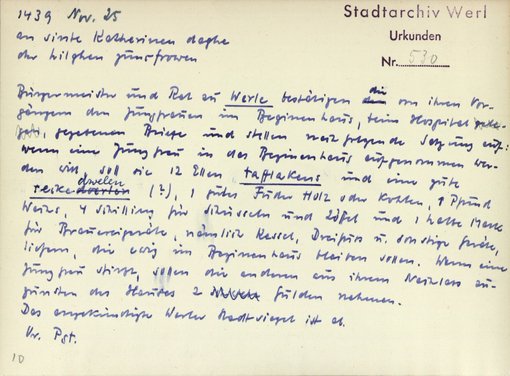 1439 Nov. 25
Stadtarchiv Werl
Urkunden
Nr. 530
an sinte Katherinen daghe
der hilghen junfrowen
Bürgermeister und Rat zu Werle bestätigen die von ihren Vor-
gängern den Jungfrauen im Beginenhaus, beim Hospital gele-
gen, gegebenen Briefe und stellen nachfolgende Satzung auf:
wenn eine Jungfrau in das Beginenhaus aufgenommen wer-
den will, soll sie 12 Ellen tafflakens und eine gute
dwelen
(?), 1 gutes Fuder Holz oder Kohlen, 1 Pfund
Wachs, 4 Schilling für Schüsseln und Löffel und 1 halbe Mark
für Brauereigeräte, nämlich Kessel, Dreifuss u. sonstige Geräte,
liefern, die ewig im Beginenhaus bleiben sollen. Wenn eine
Jungfrau stirbt, sollen die anderen aus ihrem Nachlass zu-
gunsten des Hauses 2 Gulden nehmen.
Das angekündigte Werler Stadtsiegel ist ab.
Or. Pgt.
10